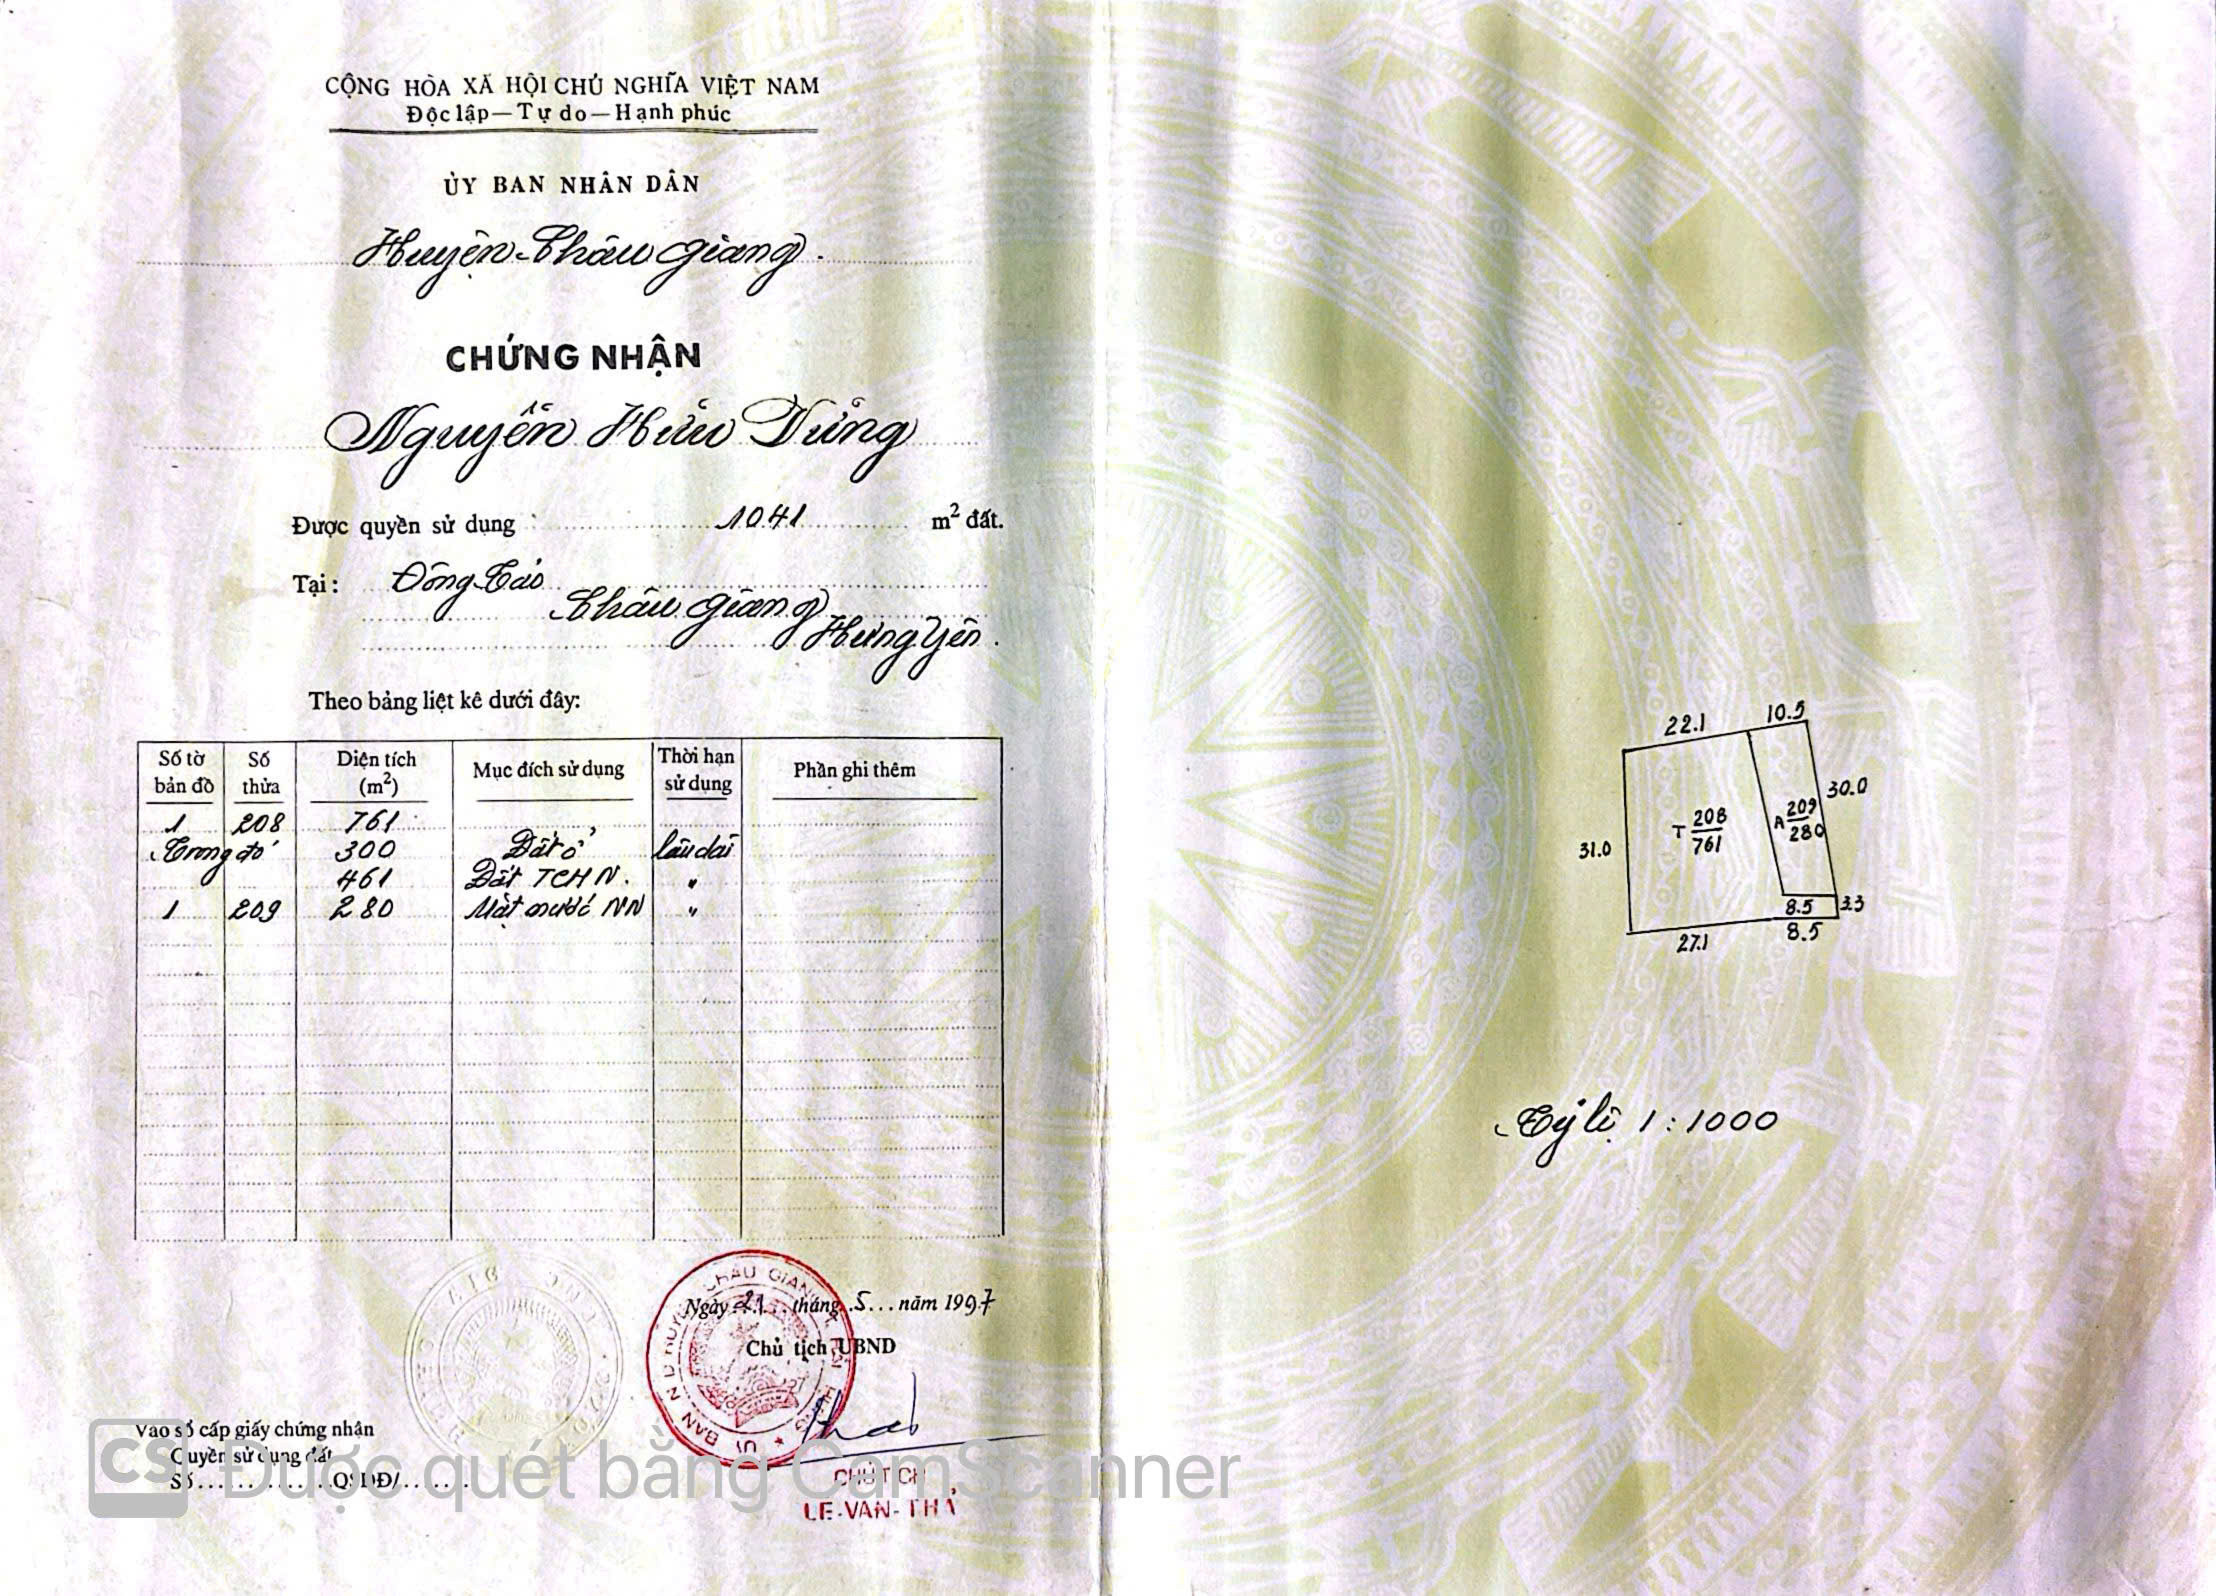 CỘNG HÒA XÃ HỘI CHỦ NGHĨA VIỆT NAM
Độc lập—Tự do—Hạnh phúc
ỦY BAN NHÂN DÂN
Huyện Châu Giang.
CHỨNG NHẬN
Nguyễn Hữu Dũng
Được quyền sử dụng 1041 m² đất.
Tại: Đông Tảo
Châu Giang
Hưng Yên.
Theo bảng liệt kê dưới đây:
Số tờ bản đồ Số thửa Diện tích (m²) Mục đích sử dụng Thời hạn sử dụng Phần ghi thêm
1 208 761
Trong đó 300 Đất ở lâu dài
461 Đất TCHN. "
1 209 280 Mặt nước NN "
Ngày 21 tháng 5 năm 1997
Chủ tịch UBND
CHỦ TỊCH
Vào sổ cấp giấy chứng nhận
Quyền sử dụng đất
Số..............QSDĐ/........
CS Được quét bằng CamScanner
22.1 10.5
30.0
T 208/761
A 209/280
31.0
8.5 3.3
27.1 8.5
Tỷ lệ 1:1000